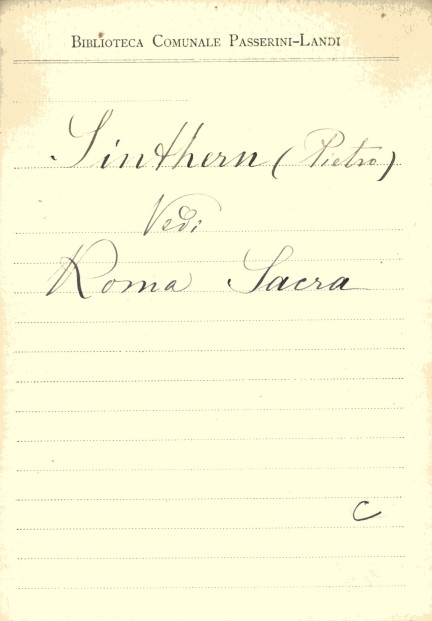 BIBLIOTECA COMUNALE PASSERINI-LANDI
Sinthern (Pietro)
Vedi
Roma Sacra
C